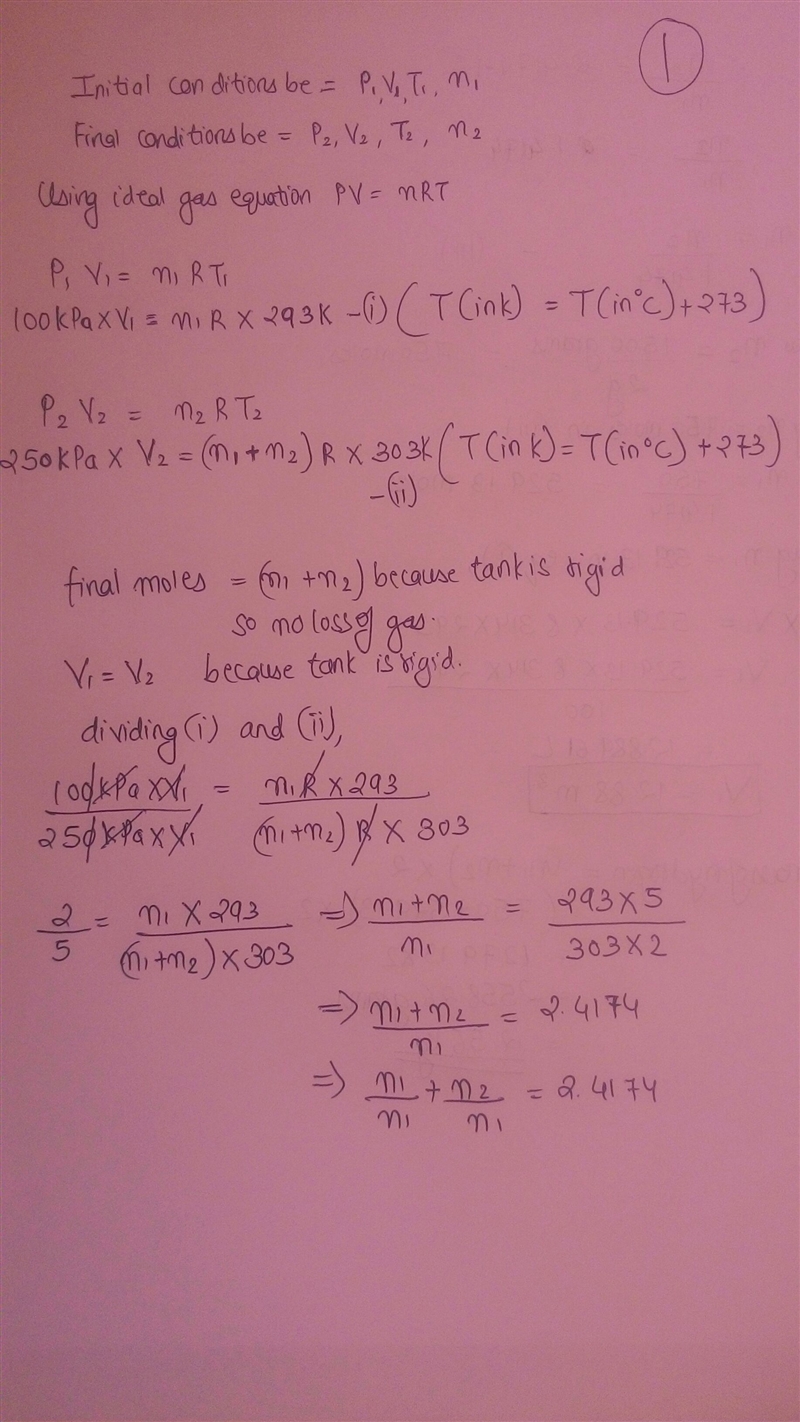 1
Initial conditions be = P₁, V₁, T₁, n₁
Final conditions be = P₂, V₂, T₂, n₂
Using ideal gas equation PV = nRT
P₁ V₁ = n₁ R T₁
100kPa x V₁ = n₁ R x 293K -(i) (T(in k) = T(in°C) + 273)
P₂ V₂ = n₂ R T₂
250kPa x V₂ = (n₁ + n₂) R x 303K (T(in k) = T(in°C) + 273)
-(ii)
final moles = (n₁ + n₂) because tank is rigid
so no loss of gas.
V₁ = V₂ because tank is rigid.
dividing (i) and (ii),
100kPa x V₁ / 250kPa x V₁ = n₁R x 293 / (n₁+n₂) R x 303
2/5 = n₁ x 293 / (n₁+n₂) x 303 => n₁+n₂ / n₁ = 293 x 5 / 303 x 2
=> n₁+n₂ / n₁ = 2.4174
=> n₁/n₁ + n₂/n₁ = 2.4174